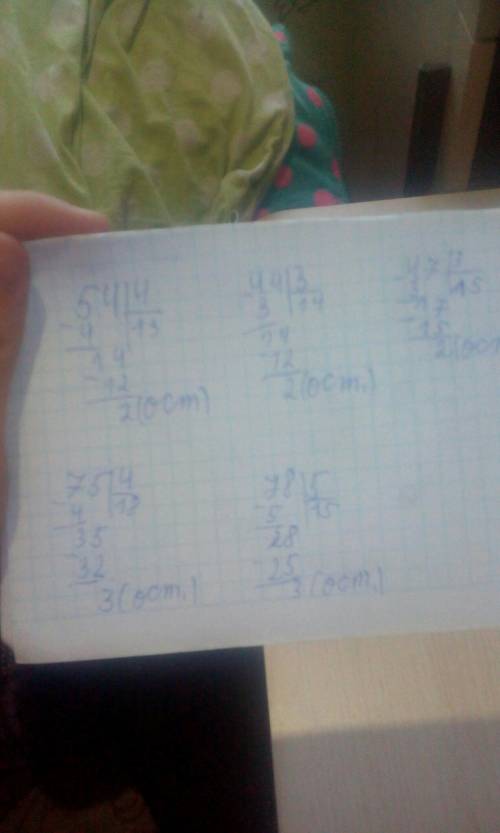 54|4
-4 |13
14
-12
2(ост)
44|3
-3 |14
14
-12
2(ост.)
47|3
-3 |15
17
-15
2(ост
75|4
-4 |18
35
-32
3(ост.)
78|5
-5 |15
28
-25
3(ост.)